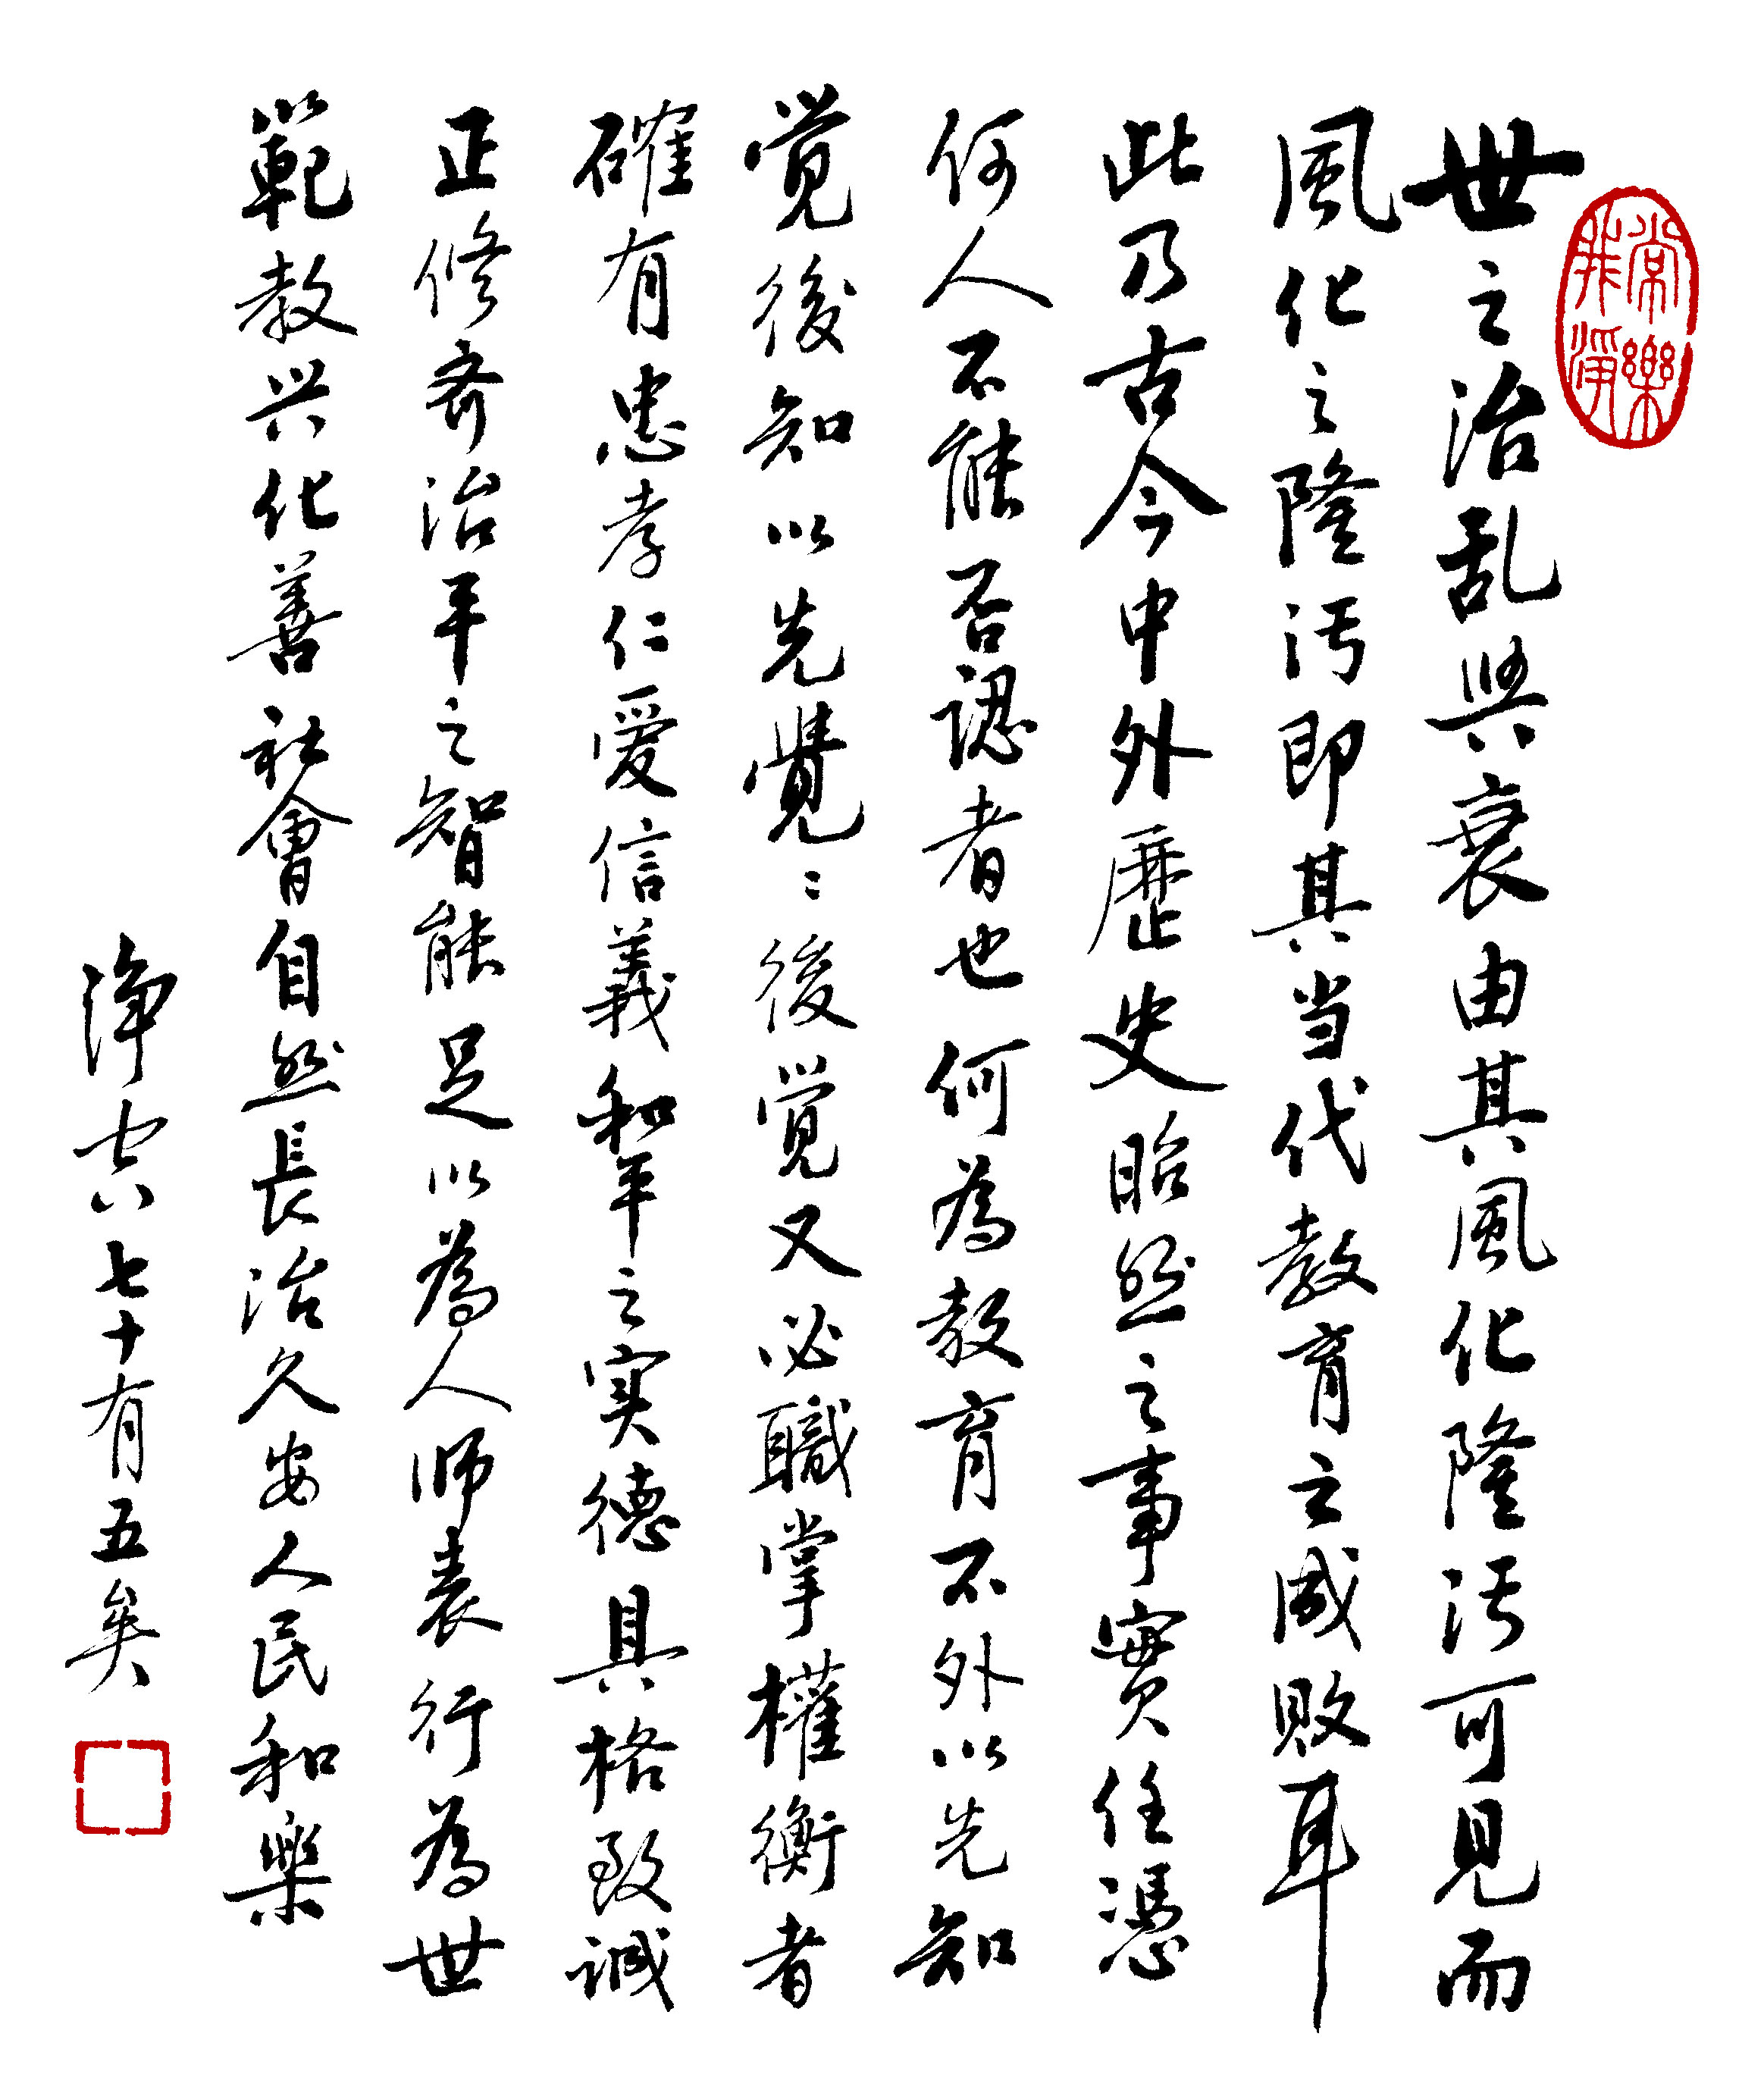 常樂我淨
世之治乱興衰由其風化隆污可見而
風化之隆污即其当代教育之成敗耳
此乃古今中外歷史昭然之事實任憑
何人不能否認者也何為教育不外以先知
覚後知以先覺々後覚又必職掌權衡者
確有忠孝仁愛信義和平之实德具格致誠
正修齐治平之智能足以為人师表行為世
範教兴化善社會自然長治久安人民和樂
淨空八七十有五矣